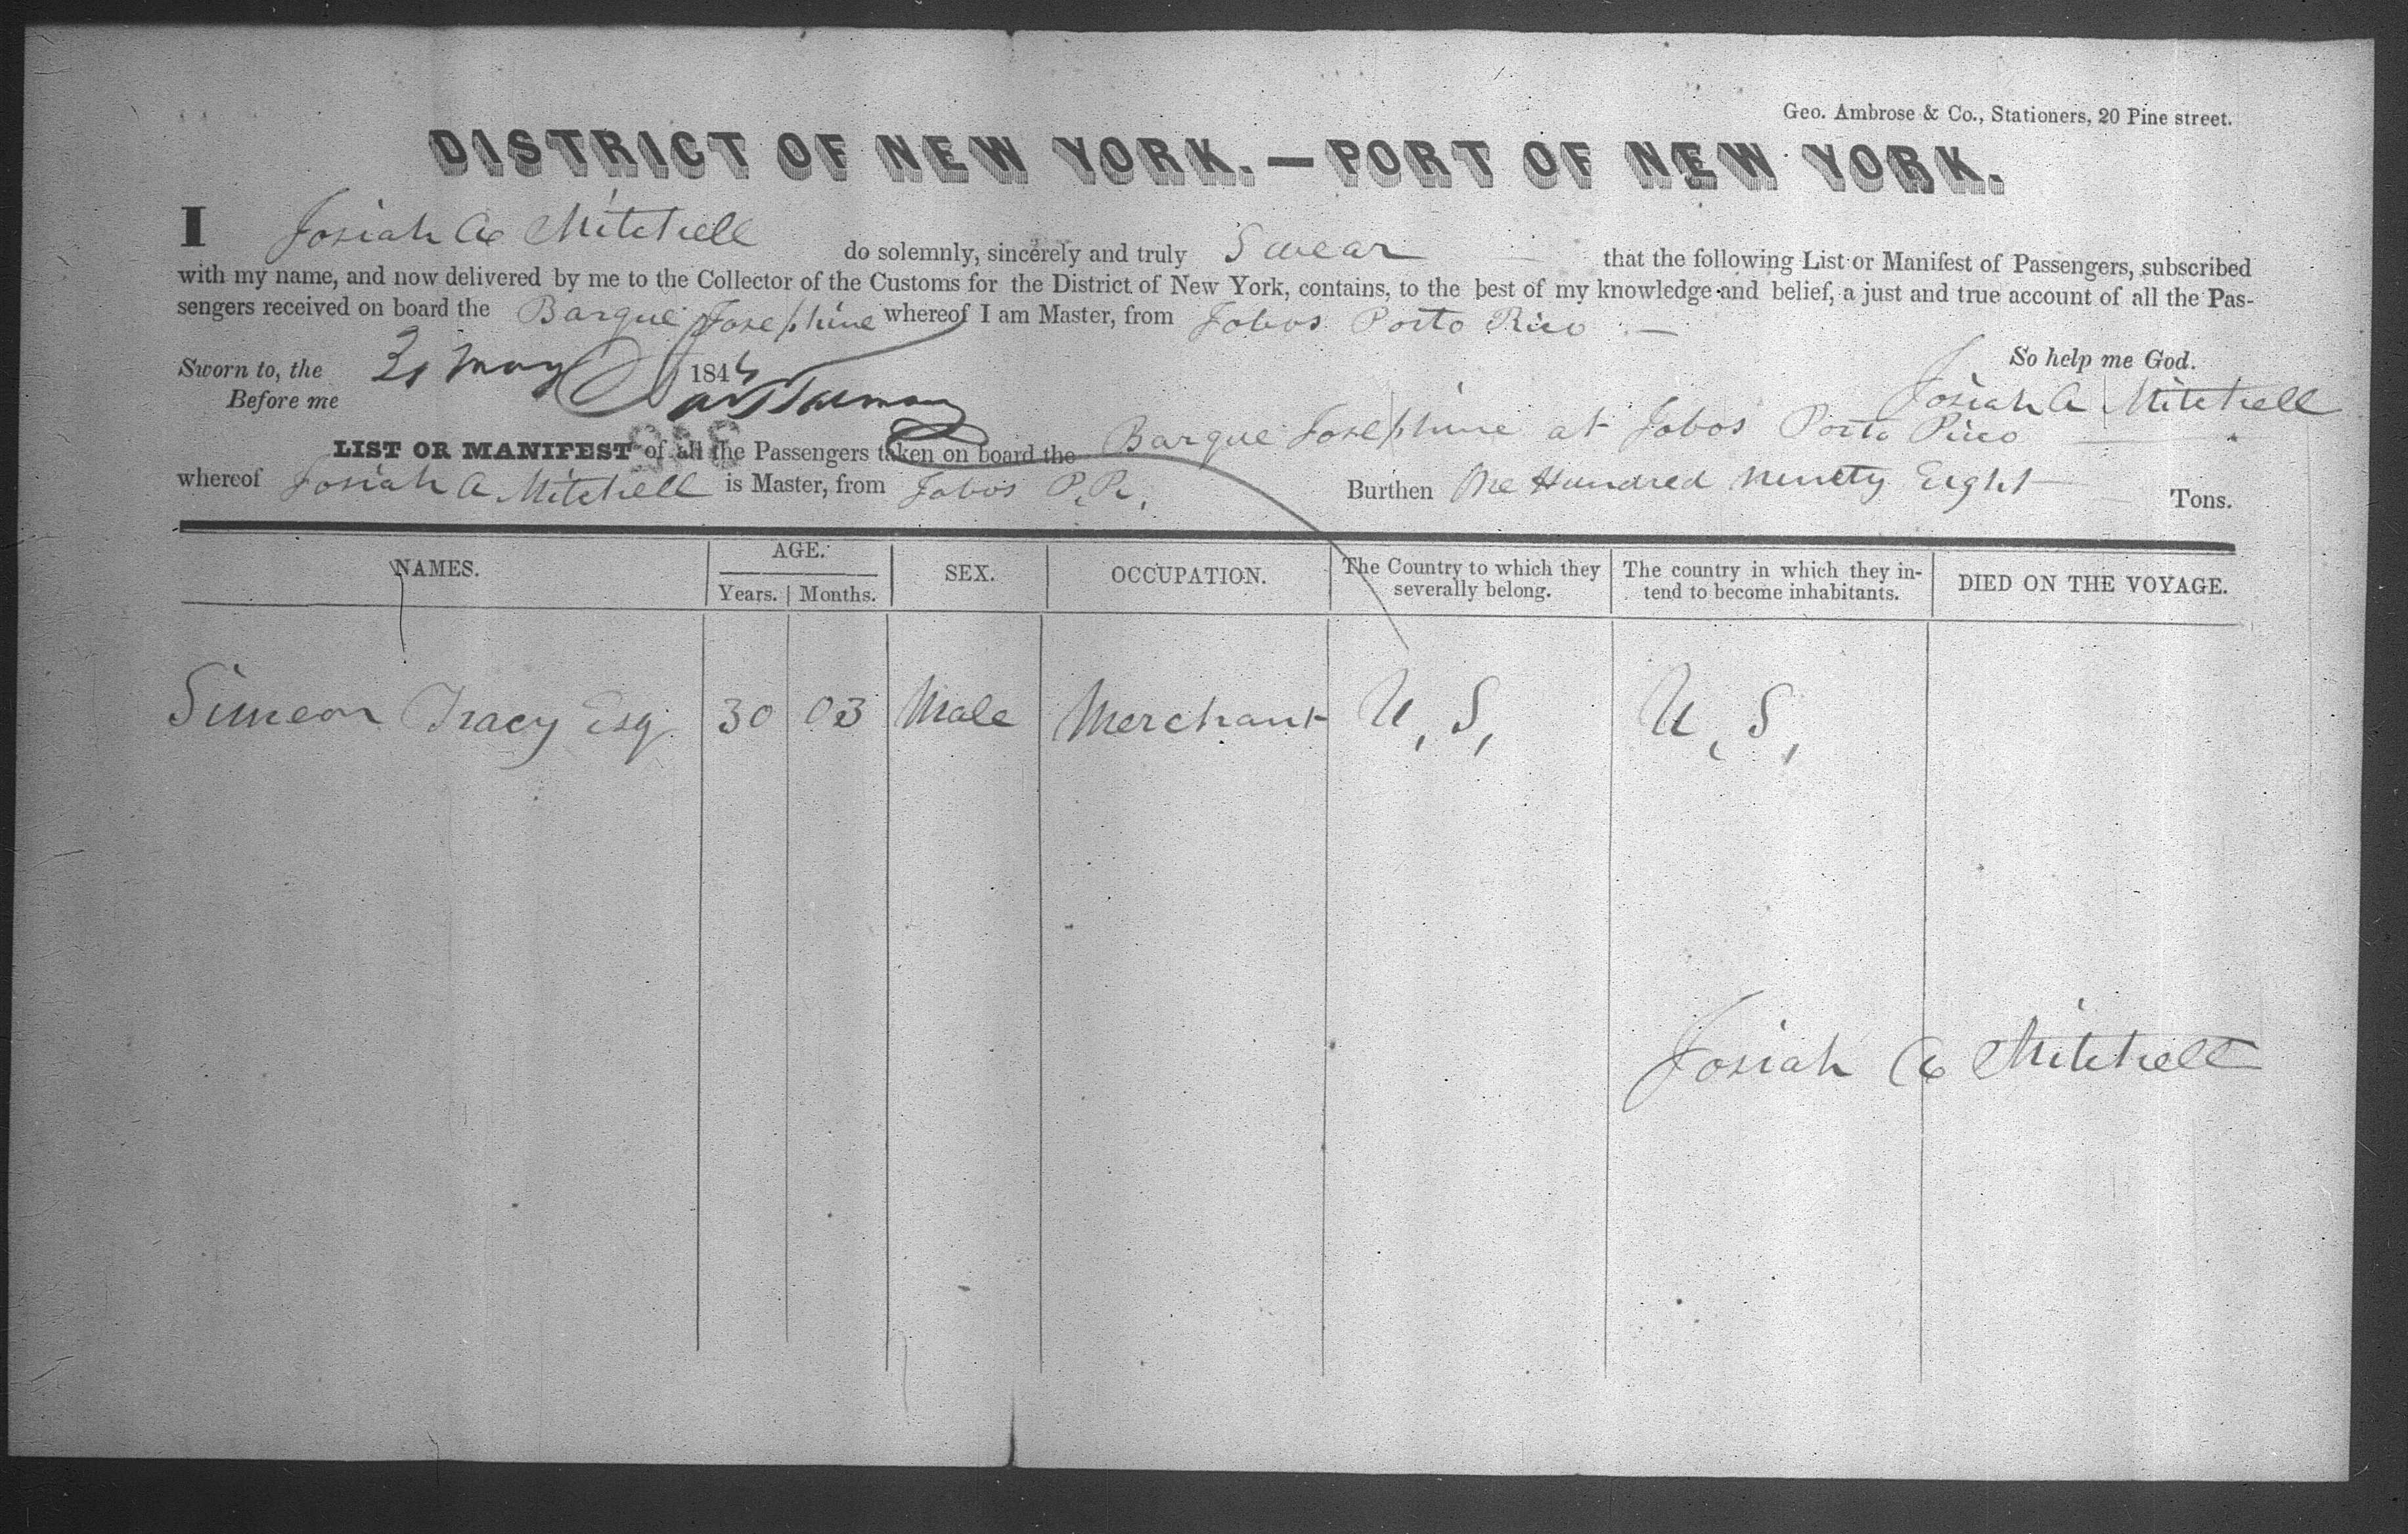 Geo. Ambrose & Co., Stationers, 20 Pine street.
DISTRICT OF NEW YORK.—PORT OF NEW YORK.
I Josiah A Mitchell do solemnly, sincerely and truly Swear that the following List or Manifest of Passengers, subscribed
with my name, and now delivered by me to the Collector of the Customs for the District of New York, contains, to the best of my knowledge and belief, a just and true account of all the Pas-
sengers received on board the Barque Josephine whereof I am Master, from Jobos Porto Rico
So help me God.
Sworn to, the 31 May 184
Before me
Josiah A Mitchell
LIST OR MANIFEST of all the Passengers taken on board the Barque Josephine at Jobos Porto Rico
whereof Josiah A Mitchell is Master, from Jobos P. R. Burthen One Hundred Ninety Eight Tons.
NAMES. AGE. SEX. OCCUPATION. The Country to which they severally belong. The country in which they in-tend to become inhabitants. DIED ON THE VOYAGE.
Years. Months.
Simeon Tracy Esq. 30 03 Male Merchant U, S, U, S,
Josiah A Mitchell